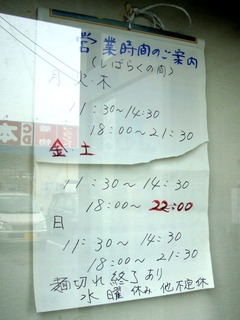 営業時間のご案内
(しばらくの間)
月 火・木
11:30〜14:30
18:00〜21:30
金 土
11:30〜14:30
18:00〜22:00
日
11:30〜14:30
18:00〜21:30
麺切れ終了あり
水曜休み 他不定休